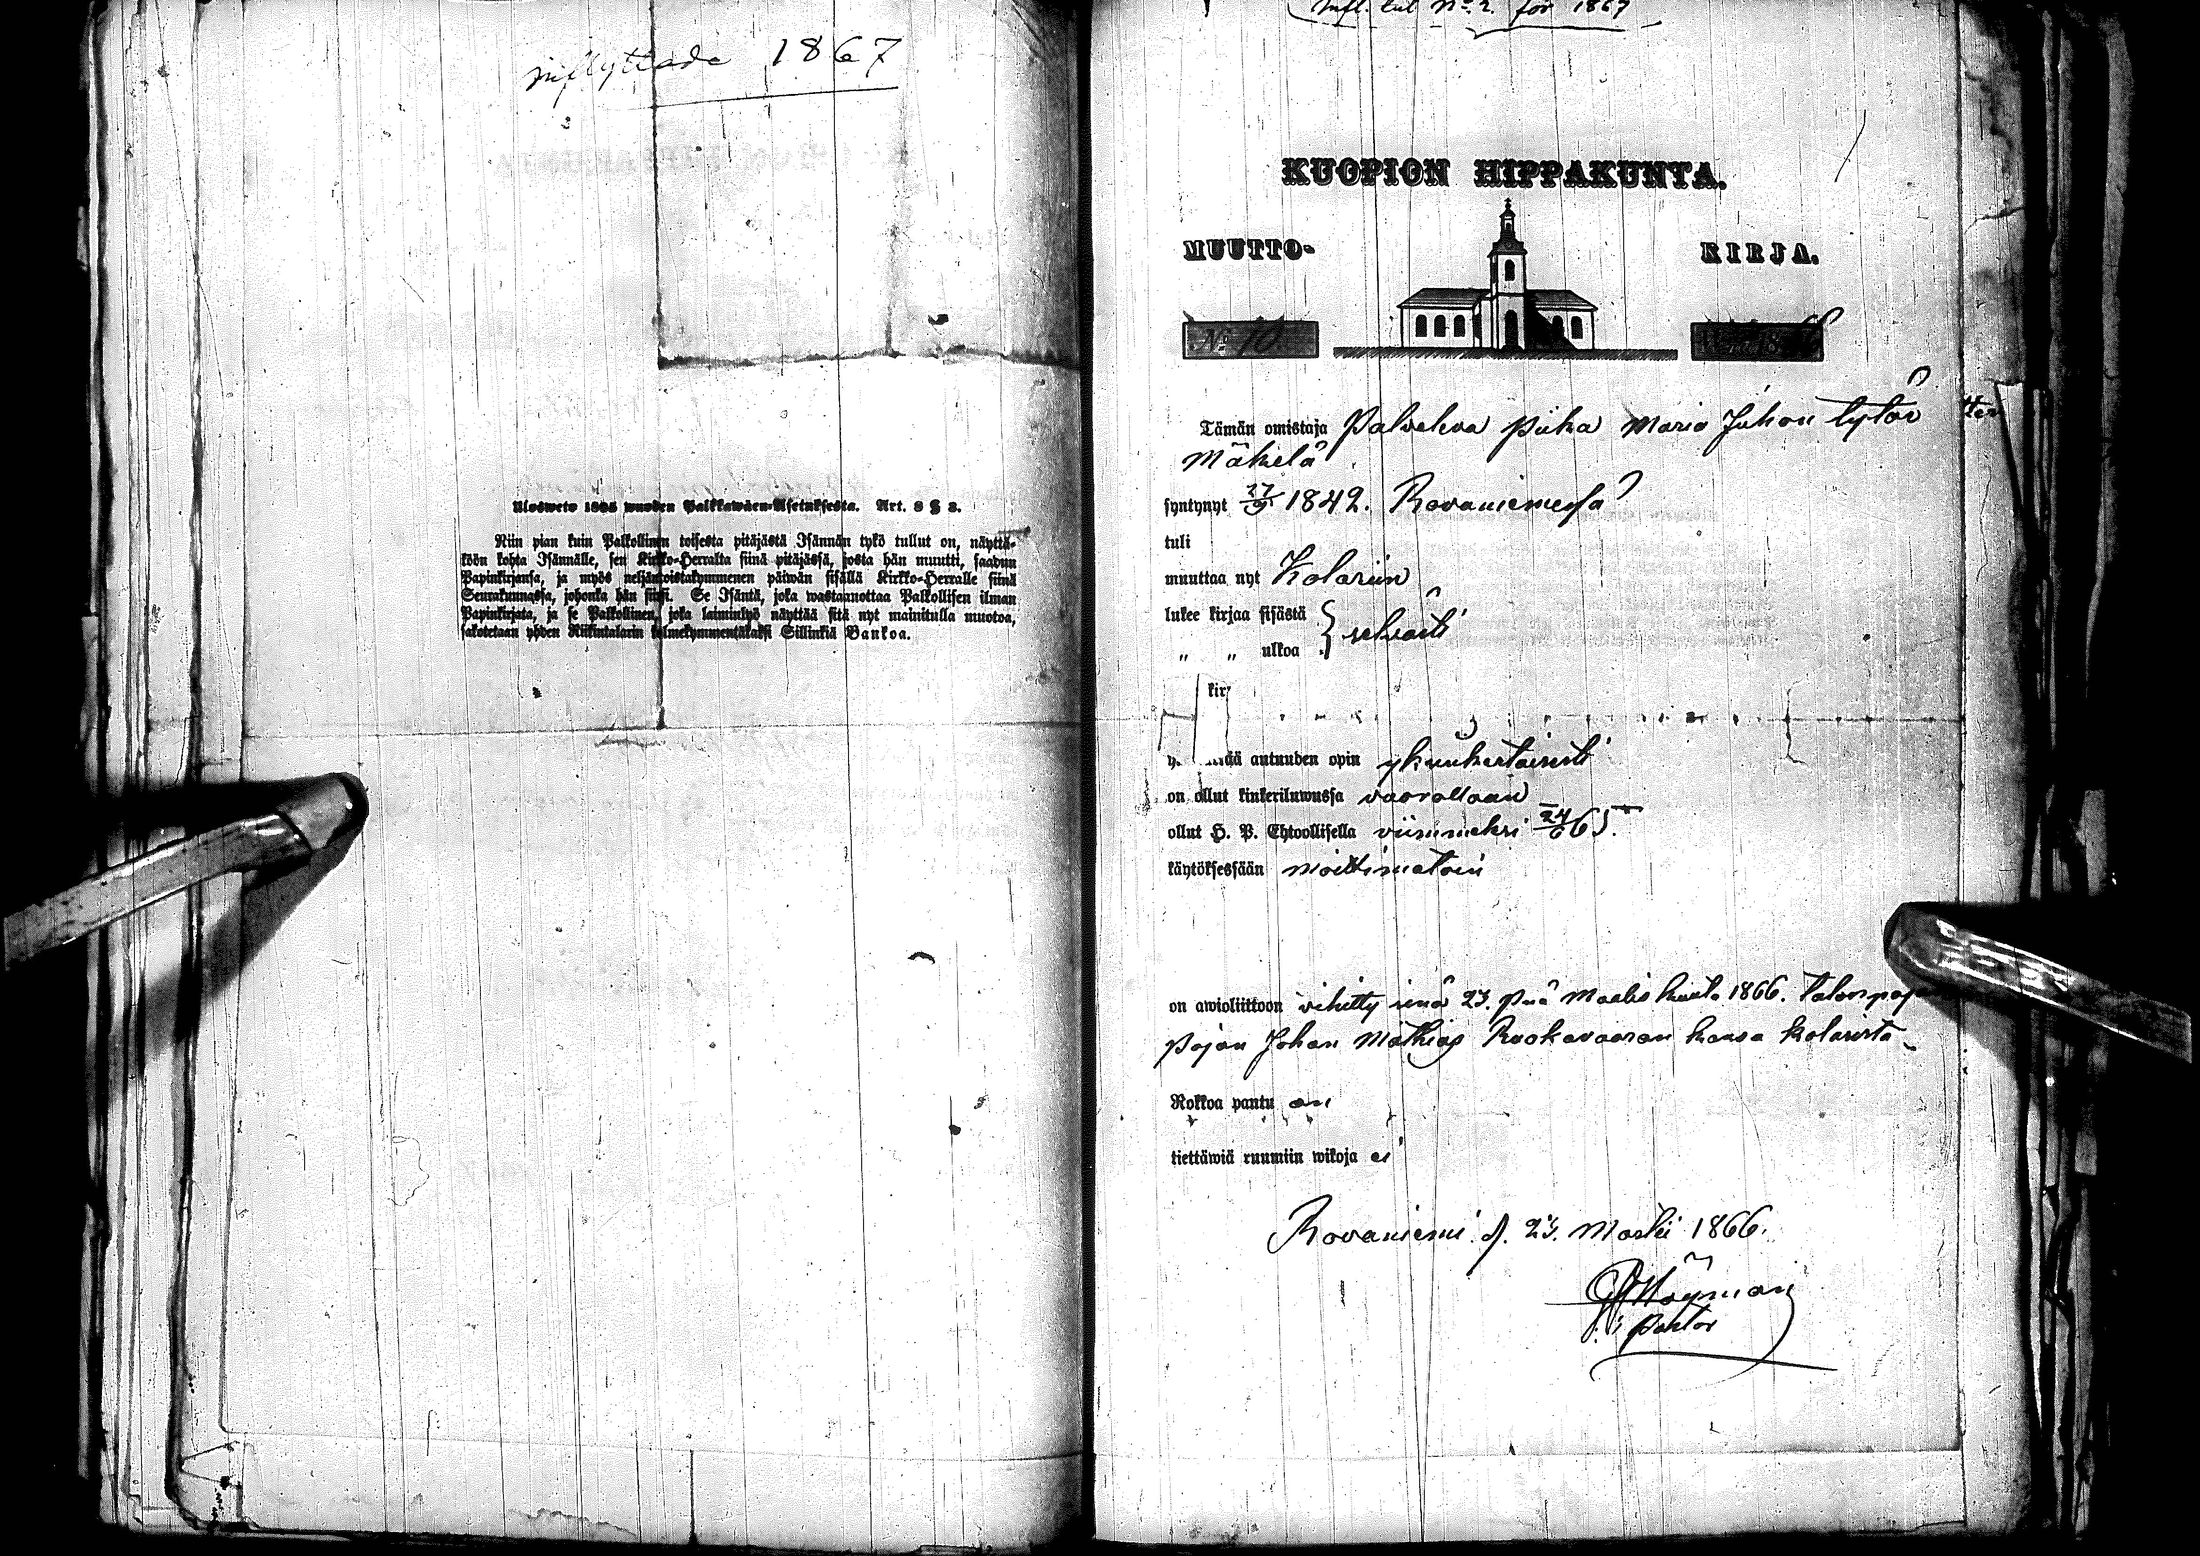 inflyttade 1867
Ulosweto 1805 wuoden Palkkawäen-Asetuksesta. Art. 8 § 3.
Niin pian kuin Palkollinen toisesta pitäjästä Isännän tykö tullut on, näyttä-
köön kohta Isännälle, sen Kirkko-Herralta siinä pitäjässä, josta hän muutti, saadun
Papinkirjansa, ja myös neljäntoistakymmenen päiwän sisällä Kirkko-Herralle siinä
Seurakunnassa, johonka hän siirsi. Se Isäntä, joka wastaanottaa Palkollisen ilman
Papinkirjata, ja se Palkollinen, joka laiminlyö näyttää sitä nyt mainitulla muotoa,
sakotetaan yhden Riikintalarin kolmekymmentäkaksi Sillinkiä Bankoa.
Infl. tul No. 2. för 1867
KUOPION HIPPAKUNTA.
MUUTTO- KIRJA.
No 10 66
Tämän omistaja Palveleva piika Maria Juhon tytär
Mäkelä
syntynyt 27/9 1842. Rovaniemessä
tuli
muuttaa nyt Kolariin
lukee kirjaa sisästä } selvästi
„ „ ulkoa
kir
autuuden opin yksinkertaisesti
on ollut kinkeriluwussa vuorollaan
ollut H. P. Ehtoollisella viimmeksi 24/6 65.
käytöksessään moittimatoin
on awioliittoon vihitty sinä 23. p:nä Maalis kuuta 1866. talonpoja
pojan Johan Mathias Ruokavaaran kansa Kolarista
Rokkoa pantu on
tiettäwiä ruumiin wikoja ei
Rovaniemi d. 23. Martii 1866.
Höyman
Pastor